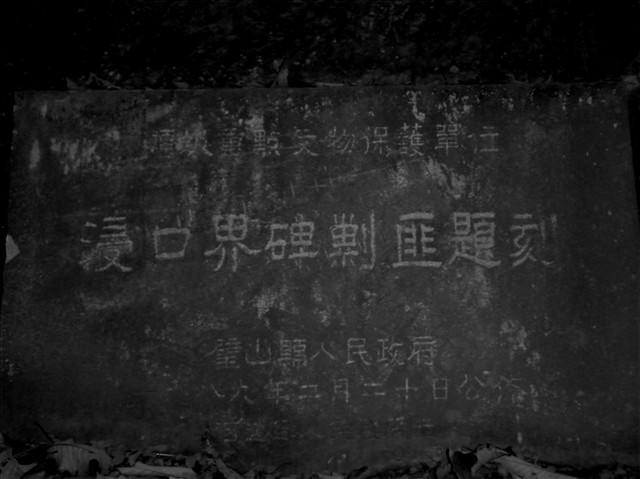 縣級重點文物保護單位
浸口界碑剿匪題刻
璧山縣人民政府
年二月二十日公佈